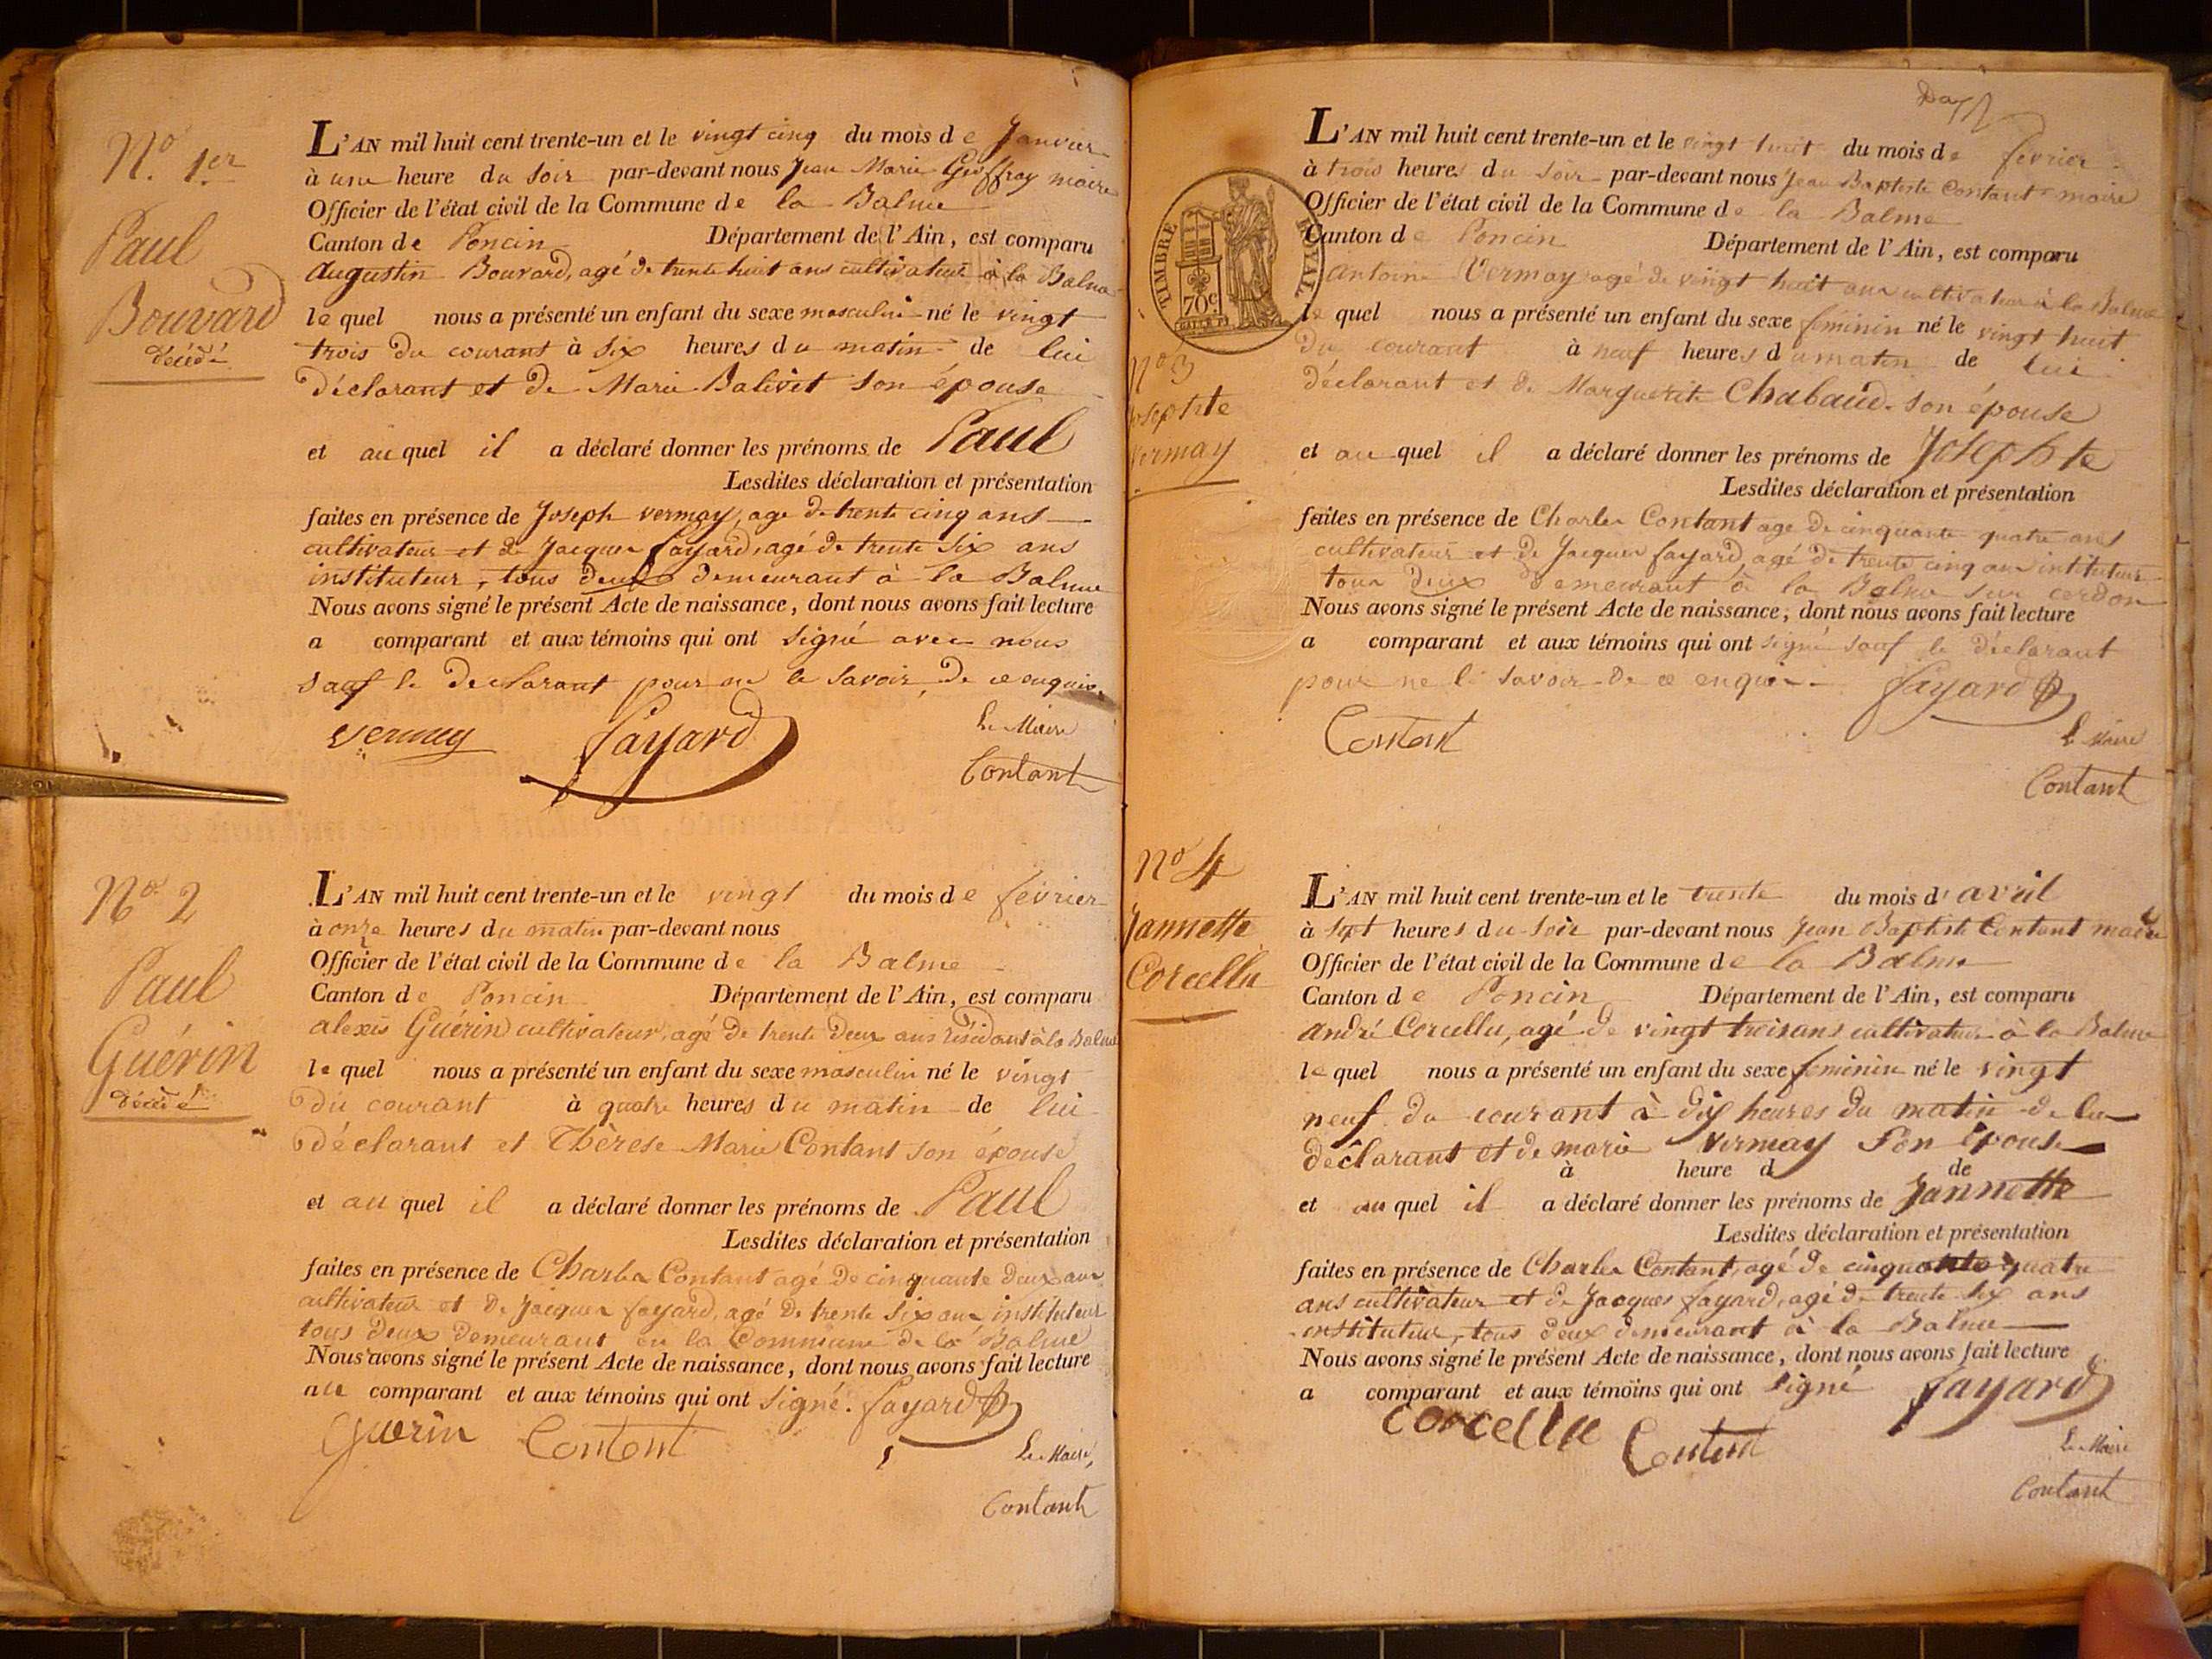 No. 1er
Paul
Bouvard
décédé
L'AN mil huit cent trente-un et le vingt cinq du mois de Janvier
à une heure du soir par-devant nous Jean Marie Geoffray maire
Officier de l'état civil de la Commune de la Balme
Canton de Poncin Département de l'Ain, est comparu
augustin Bouvard, agé de trente huit ans cultivateur à la Balme
le quel nous a présenté un enfant du sexe masculin né le vingt
trois du courant à six heures du matin de lui
déclarant et de Marie Balivet son épouse
et au quel il a déclaré donner les prénoms de Paul
Lesdites déclaration et présentation
faites en présence de Joseph vermay, age de trente cinq ans
cultivateur et de Jacques fayard, agé de trente six ans
instituteur, tous deux demeurant à la Balme
Nous avons signé le présent Acte de naissance, dont nous avons fait lecture
a comparant et aux témoins qui ont signé avec nous
sauf le declarant pour ne le savoir de ce enquis.
vermay fayard Le Maire
Contant
No. 2
Paul
Guérin
décédé
L'AN mil huit cent trente-un et le vingt du mois de fevrier
à onze heures du matin par-devant nous
Officier de l'état civil de la Commune de la Balme
Canton de Poncin Département de l'Ain, est comparu
alexis Guérin cultivateur, agé de trente deux ans résidant à la Balme
le quel nous a présenté un enfant du sexe masculin né le vingt
du courant à quatre heures du matin de lui
déclarant et Thèrese Marie Contant son épouse
et au quel il a déclaré donner les prénoms de Paul
Lesdites déclaration et présentation
faites en présence de Charles Contant agé de cinquante deux ans
cultivateur et de Jacques fayard, agé de trente six ans, instituteur
tous deux demeurant en la Commune de la Balme
Nous avons signé le présent Acte de naissance, dont nous avons fait lecture
au comparant et aux témoins qui ont signé. fayard
Guerin Contant Le Maire,
Contant
TIMBRE ROYAL
70c
No 3
Josephte
Vermay
L'AN mil huit cent trente-un et le vingt huit du mois de fevrier
à trois heures du soir par-devant nous Jean Baptiste Contant maire
Officier de l'état civil de la Commune de la Balme
Canton de Poncin Département de l'Ain, est comparu
antoine Vermay agé de vingt huit ans cultivateur à la Balme
le quel nous a présenté un enfant du sexe féminin né le vingt huit
du courant à neuf heures du matin de lui
déclarant et de Marguerite Chabaud son épouse
et au quel il a déclaré donner les prénoms de Josephte
Lesdites déclaration et présentation
faites en présence de Charles Contant age de cinquante quatre ans
cultivateur et de Jacques fayard, agé de trente cinq ans instituteur
tous deux demeurant à la Balme sur cerdon
Nous avons signé le présent Acte de naissance, dont nous avons fait lecture
a comparant et aux témoins qui ont signé sauf le déclarant
pour ne le savoir de ce enquis fayard
Contant Le Maire
Contant
No 4
Jannette
Corcelle
L'AN mil huit cent trente-un et le trente du mois d'avril
à sept heures du soir par-devant nous Jean Baptiste Contant maire
Officier de l'état civil de la Commune de la Balme
Canton de Poncin Département de l'Ain, est comparu
andré Corcelle, agé de vingt trois ans cultivateur à la Balme
le quel nous a présenté un enfant du sexe féminin né le vingt
neuf du courant à dix heures du matin de lui
déclarant et de marie Vermay son épouse
à heure d de
et au quel il a déclaré donner les prénoms de Jannette
Lesdites déclaration et présentation
faites en présence de Charles Contant, agé de cinquante quatre
ans cultivateur et de Jacques fayard, agé de trente six ans
instituteur, tous deux demeurant à la Balme
Nous avons signé le présent Acte de naissance, dont nous avons fait lecture
a comparant et aux témoins qui ont signé fayard
corcelle Contant Le Maire
Contant